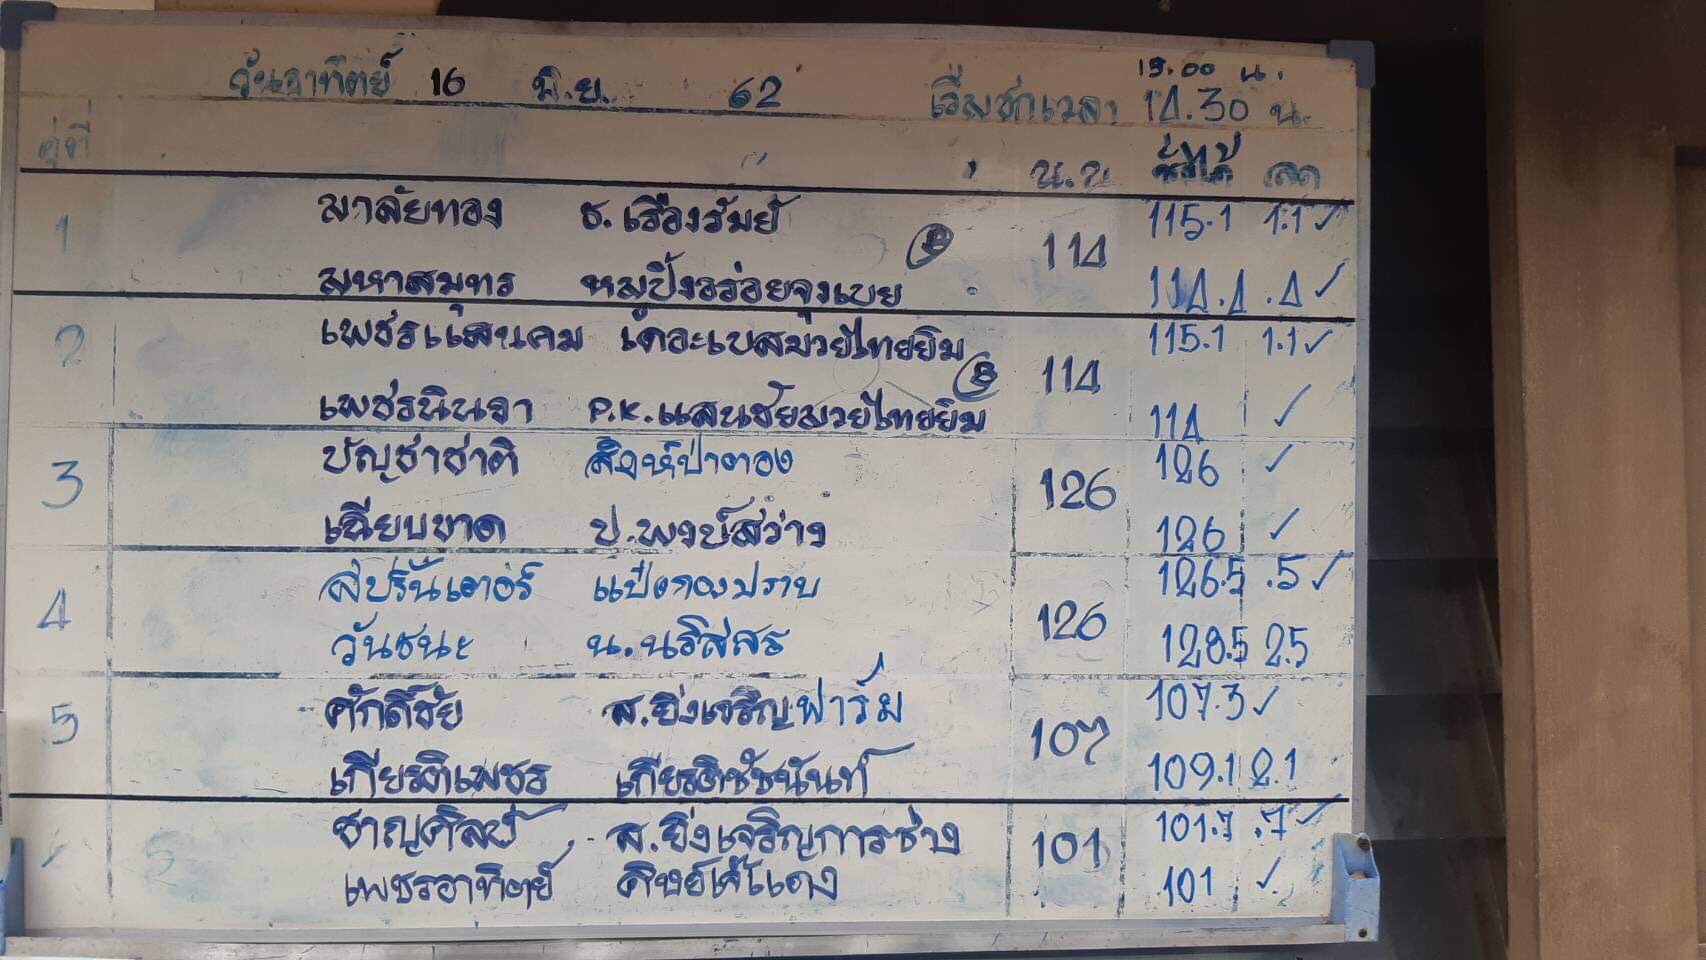 วันอาทิตย์ 16 มิ.ย. 62 เริ่มชกเวลา 14.30 น.
คู่ที่ น.น. ชั่งได้ ลด
1 มาลัยทอง ธ.เรืองรัมย์ 114 115.1 1.1 ✓
มหาสมุทร หมูปิ้งอร่อยจุงเบย B 114.4 .4 ✓
2 เพชรแสนคม เดอะเบสมวยไทยยิม 114 115.1 1.1 ✓
เพชรนินจา P.K.แสนชัยมวยไทยยิม B 114 ✓
3 บัญชาชาติ สิงห์ป่าตอง 126 126 ✓
เฉียบขาด ป.พงษ์สว่าง 126 ✓
4 สปรินเตอร์ แป๊ะกองปราบ 126 126.5 .5 ✓
วันชนะ น.นริสสร 128.5 2.5
5 ศักดิ์ชัย ส.ยิ่งเจริญฟาร์ม 107 107.3 ✓
เกียรติเพชร เกียรติชัชนันท์ 109.1 2.1
ชาญศิลป์ ส.ยิ่งเจริญการช่าง 101 101.7 .7 ✓
เพชรอาทิตย์ ศิษย์เจ๊แดง 101 ✓